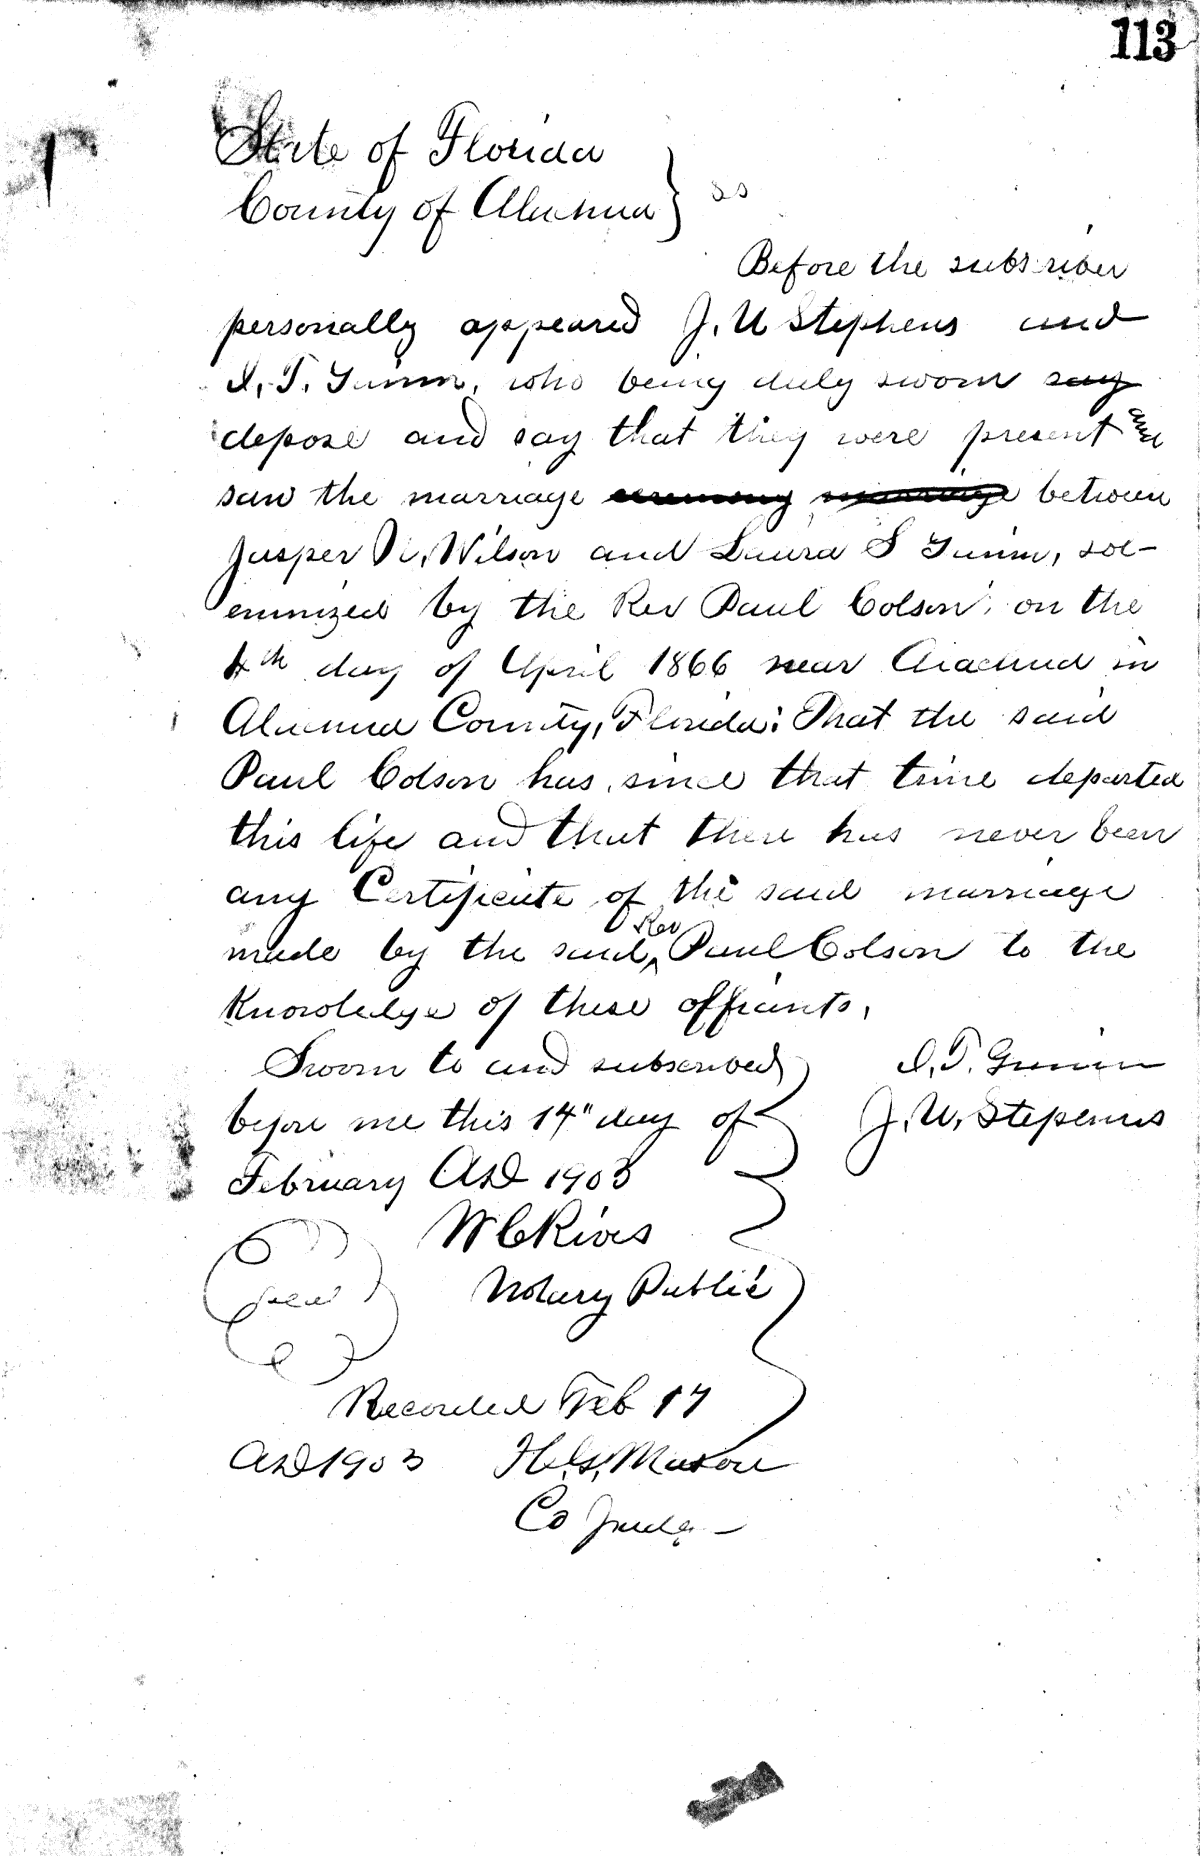 113
State of Florida
County of Alachua } ss
Before the subscriber
personally appeared J. W Stephens and
I. T. Guinn, who being duly sworn say
depose and say that they were present and
saw the marriage ceremony marriage between
Jasper N. Wilson and Laura S Guinn, sol-
emnized by the Rev Paul Colson, on the
4th day of April 1866 near Alachua in
Alachua County, Florida: That the said
Paul Colson has, since that time departed
this life and that there has never been
any Certificate of the said marriage
made by the said Rev Paul Colson to the
Knowledge of these affiants,
Sworn to and subscribed I. T. Guinn
before me this 14" day of J. W. Stephens
February AD 1903
W C Rives
seal Notary Public
Recorded Feb 17
AD 1903 H. G. Mason
Co Judge